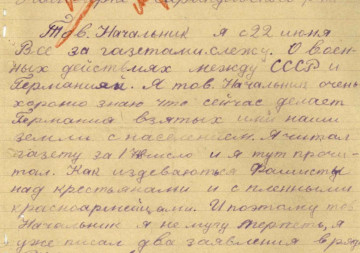 Тов. Начальник я с 22 июня
Все за газетами слежу. О воен-
ных действиях между СССР и
Германияй. Я тов. Начальник очень
хорошо знаю что сейчас делает
Германия взятых ими наши
земли с населением. Я читал
газету за 1 число и я тут прочи-
тал. Как издеваються Фашисты
над крестьянами и с пленными
красноармейцами. И поэтому тов
Начальник я не могу терпеть, я
уже писал два заявления в ряд